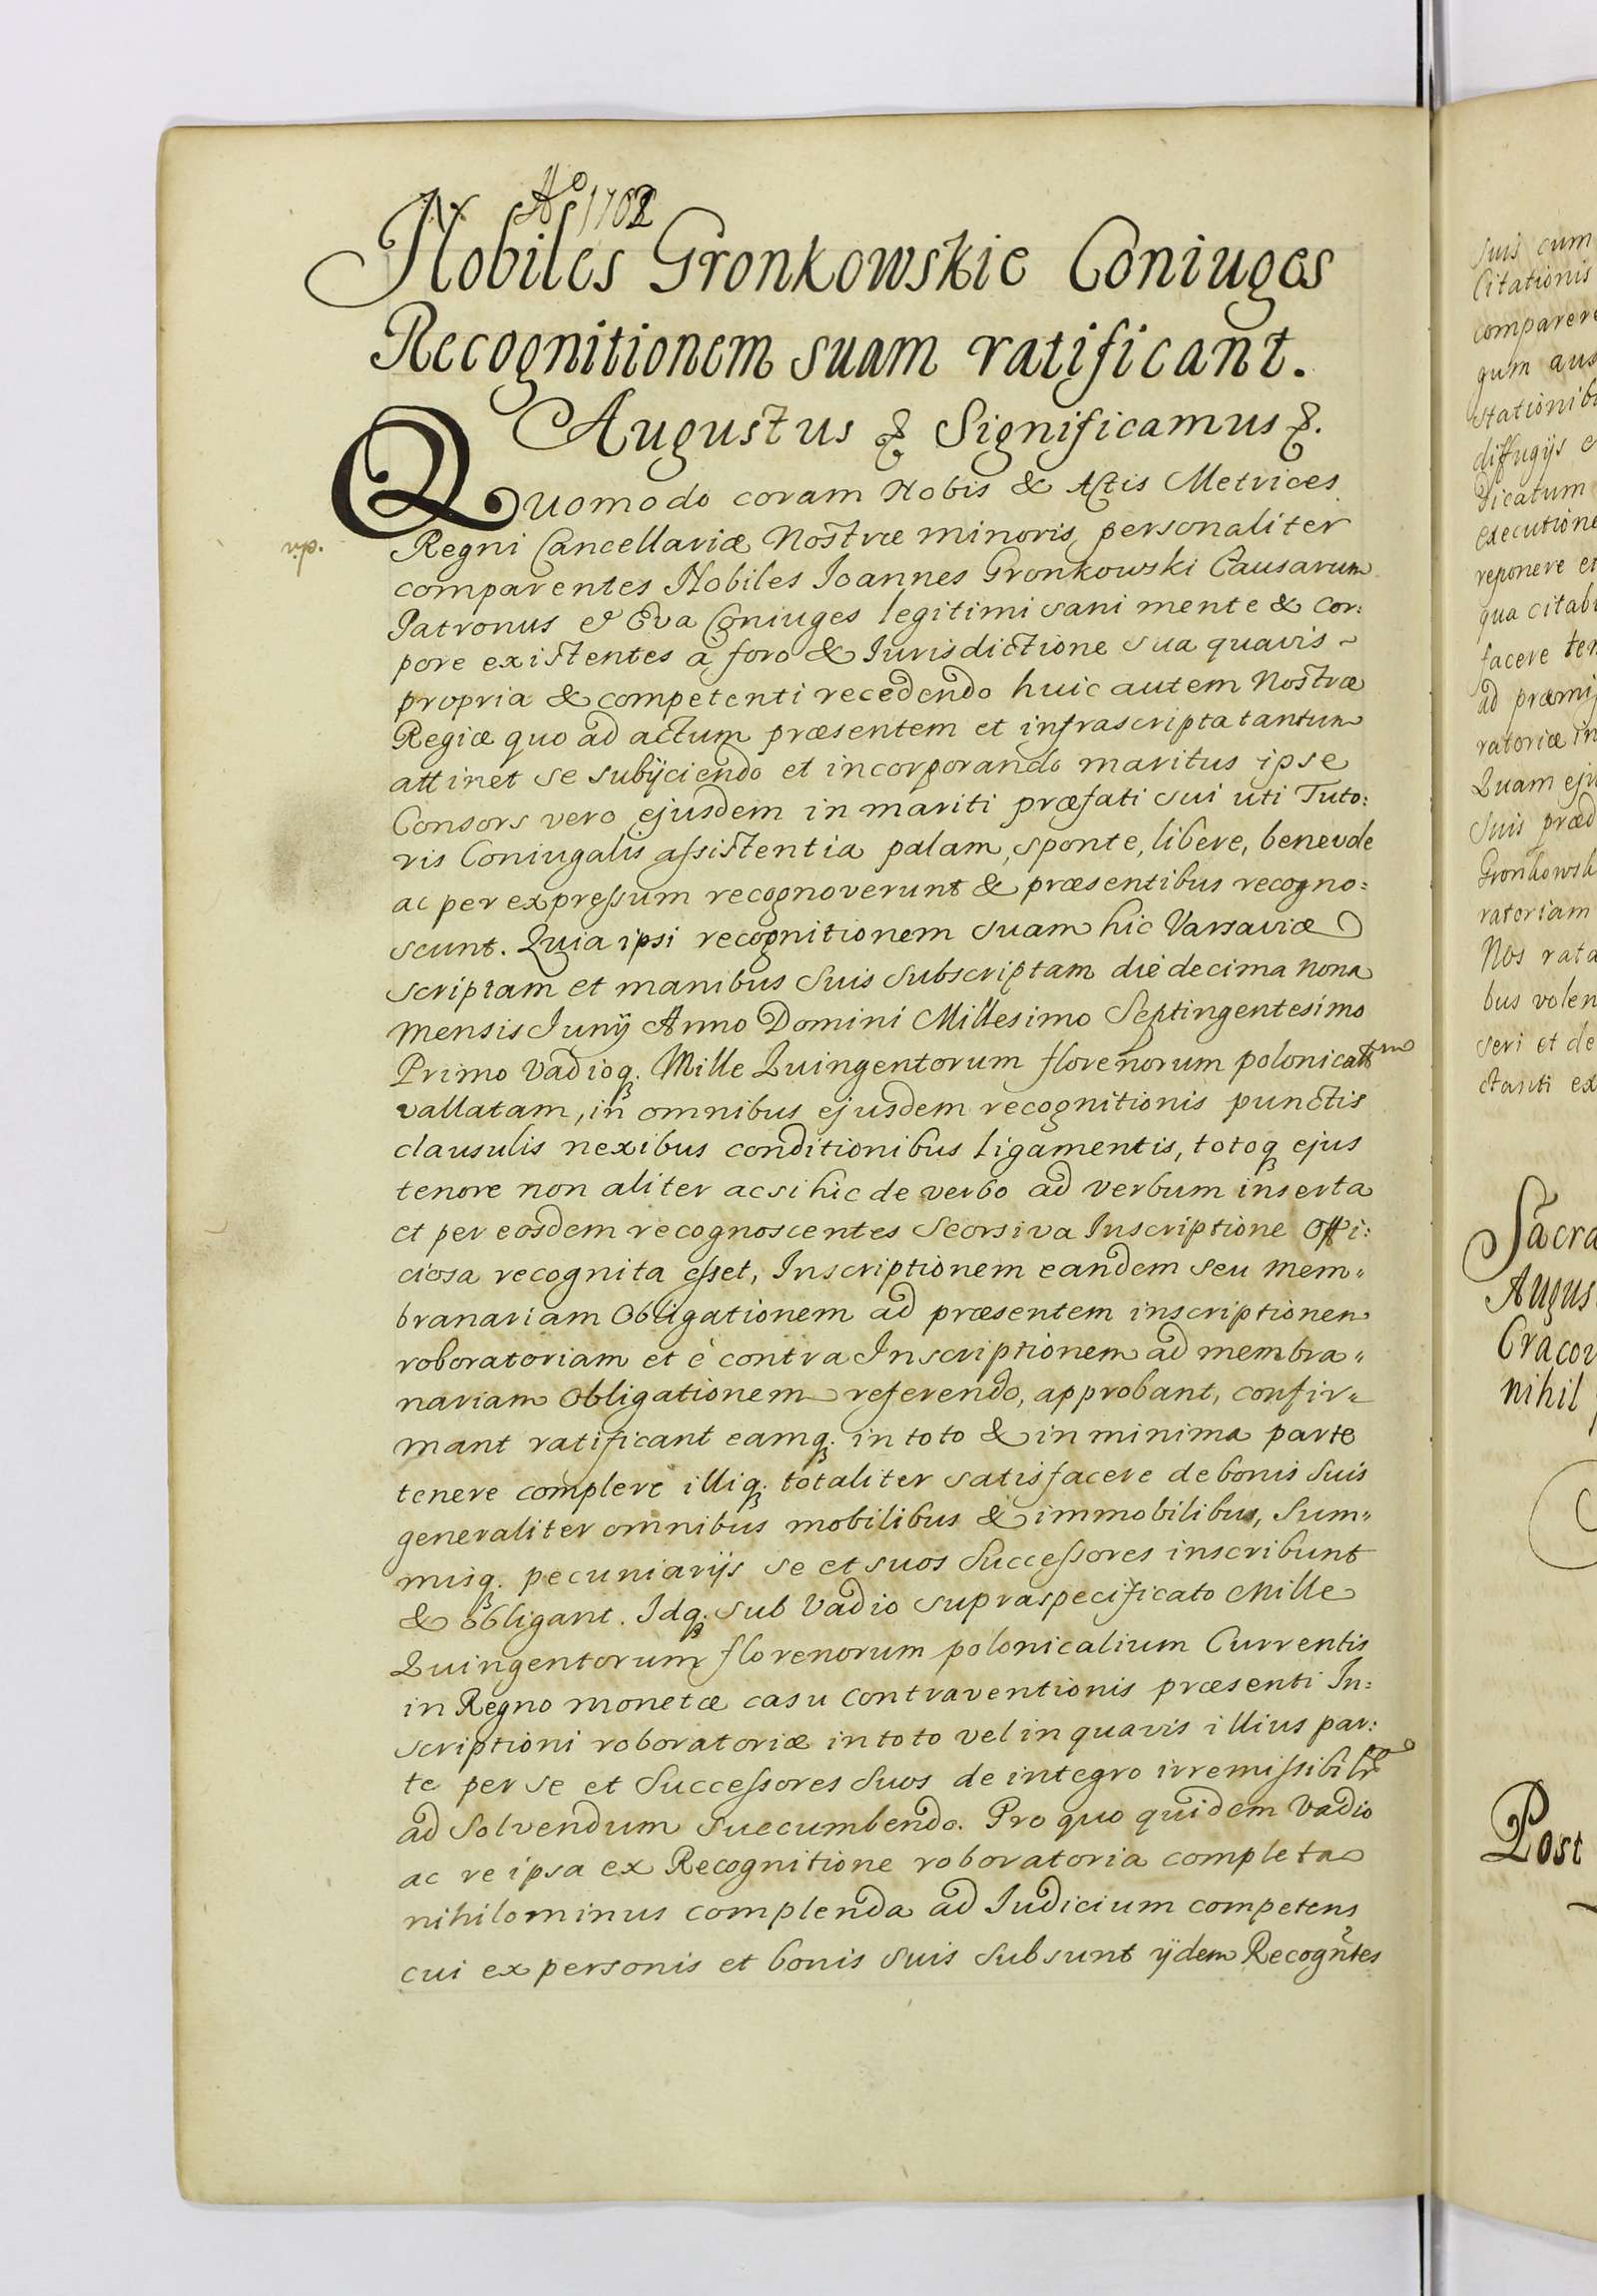 Aº 1702
Nobiles Gronkowskie Coniuges
Recognitionem suam ratificant.
Augustus & Significamus &.
Quomodo coram Nobis & Actis Metrices
Regni Cancellariæ Nostræ minoris personaliter
comparentes Nobiles Ioannes Gronkowski Causarum
Patronus & Eva Coniuges legitimi sani mente & cor:
pore existentes à foro & Iurisdictione sua quavis ~
propria & competenti recedendo huic autem Nostræ
Regiæ quo ad actum præsentem et infrascripta tantum
attinet se subijciendo et incorporando maritus ipse
Consors vero ejusdem in mariti præfati sui uti Tuto:
ris Coniugalis assistentia palam, sponte, libere, benevole
ac per expressum recognoverunt & præsentibus recogno:
scunt. Quia ipsi recognitionem suam hic Varsaviæ
scriptam et manibus suis subscriptam die decima nona
mensis Junij Anno Domini Millesimo Septingentesimo
Primo Vadioq. Mille Quingentorum florenorum polonicaliũm
vallatam, in omnibus ejusdem recognitionis punctis
clausulis nexibus conditionibus ligamentis, totoq ejus
tenore non aliter ac si hic de verbo ad verbum inserta
et per eosdem recognoscentes seorsiva Inscriptione Offi:
ciosa recognita esset, Inscriptionem eandem seu mem„
branariam Obligationem ad præsentem inscriptionem
roboratoriam et è contra Inscriptionem ad membra„
nariam Obligationem referendo, approbant, confir„
mant ratificant eamq. in toto & in minima parte
tenere complere illiq. totaliter satisfacere de bonis suis
generaliter omnibus mobilibus & immobilibus, Sum„
misq. pecuniarijs se et suos Successores inscribunt
& obligant. Idq. sub Vadio supraspecificato Mille
Quingentorum florenorum polonicalium Currentis
in Regno monetæ casu contraventionis præsenti In:
scriptioni roboratoriæ in toto vel in quavis illius par:
te per se et Successores suos de integro irremissibilr
ad solvendum succumbendo. Pro quo quidem Vadio
ac re ipsa ex Recognitione roboratoria completa
nihilominus complenda ad Iudicium competens
cui ex personis et bonis suis subsunt ijdem Recogntes
suis cum
Citationis
comparere
gum aus
stationib
diffugijs e
dicatum
executione
reponere et
qua citab
facere ter
ad præmi
ratoriæ in
Quam eju
suis præd
Gronkowsk
ratoriam
Nos rata
bus volen
seri et de
ctanti ex
Sacra
Augus
Cracov
nihil
Post